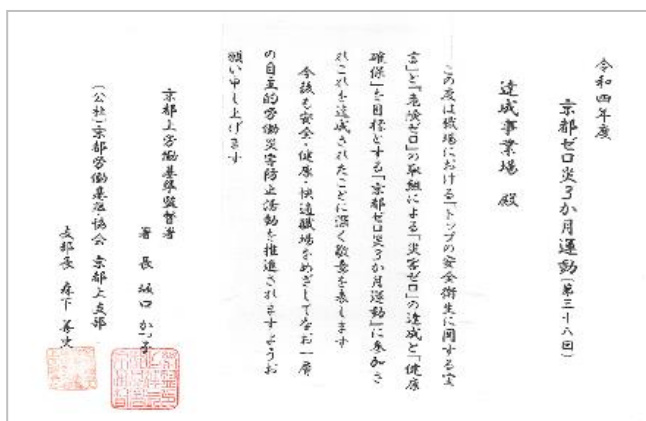 令和四年度
京都ゼロ災3か月運動(第三十八回)
達成事業場 殿
この度は職場における「トップの安全衛生に関する宣
言」と「危険ゼロ」の取組による「災害ゼロ」の達成と「健康
確保」を目標とする「京都ゼロ災3か月運動」に参加さ
れこれを達成されたことに深く敬意を表します
今後も安全・健康・快適職場をめざしてなお一層
の自主的労働災害防止活動を推進されますようお
願い申し上げます
京都上労働基準監督署
署長 坂口 かつ子
(公社)京都労働基準協会 京都上支部
支部長 森下